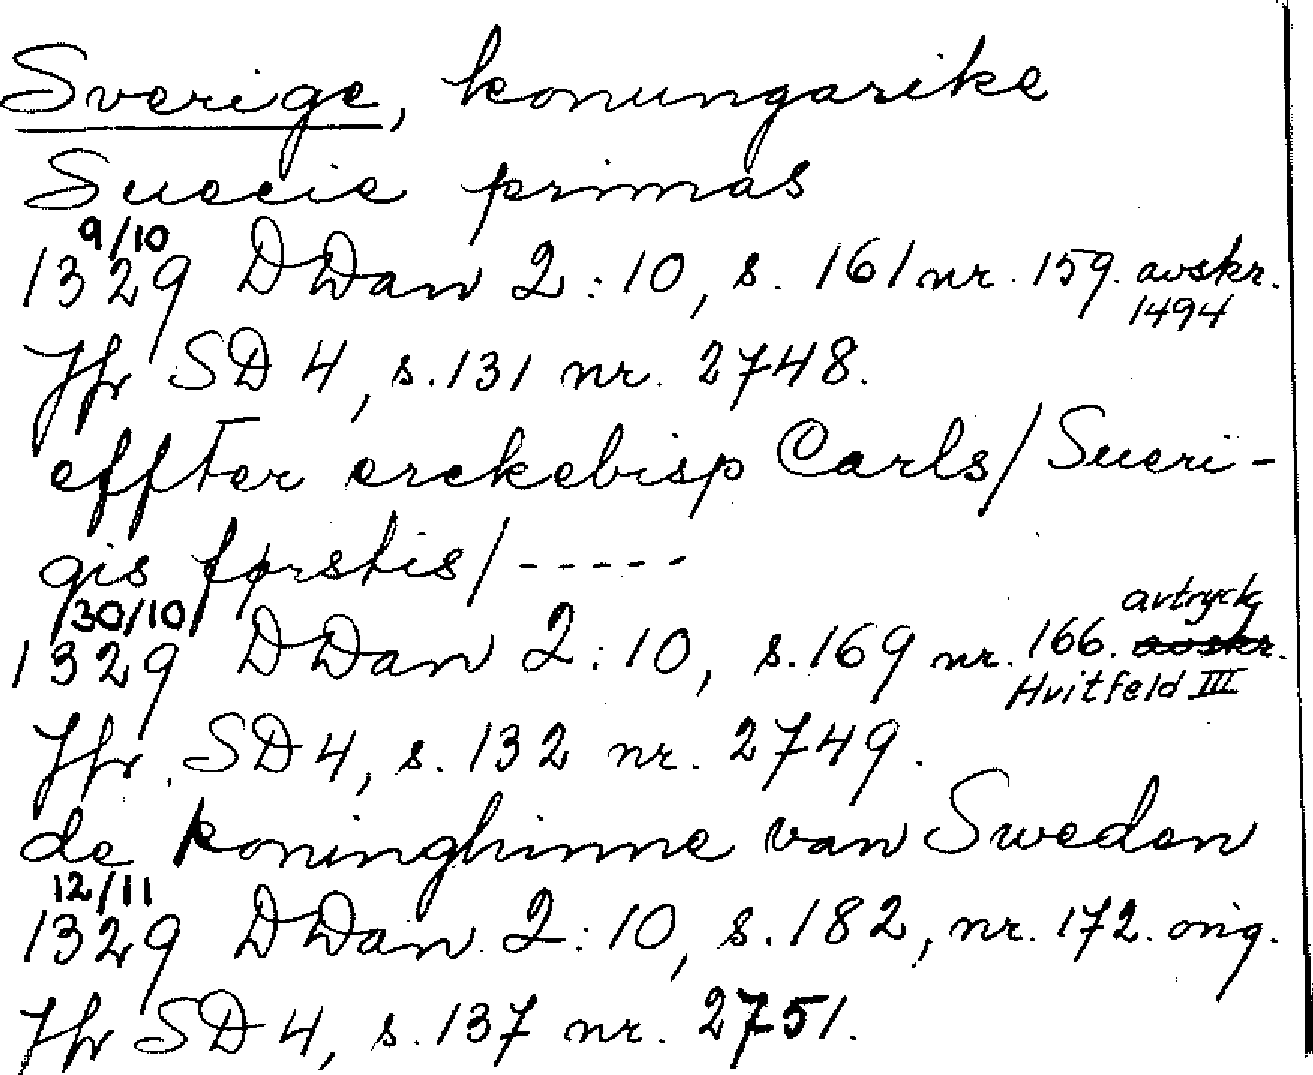 Sverige, konungarike
Suecie primas
9/10
1329 DDan 2:10, s. 161 nr. 159. avskr.
1494
Jfr SD 4, s. 131 nr. 2748.
effter erckebisp Carls/Sueri-
gis førstis/-----
30/10
avtryck
1329 DDan 2:10, s. 169 nr. 166. avskr.
Hvitfeld III
Jfr. SD 4, s. 132 nr. 2749.
de koninghinne van Sweden
12/11
1329 DDan. 2:10, s. 182, nr. 172. orig.
Jfr SD 4, s. 137 nr. 2751.